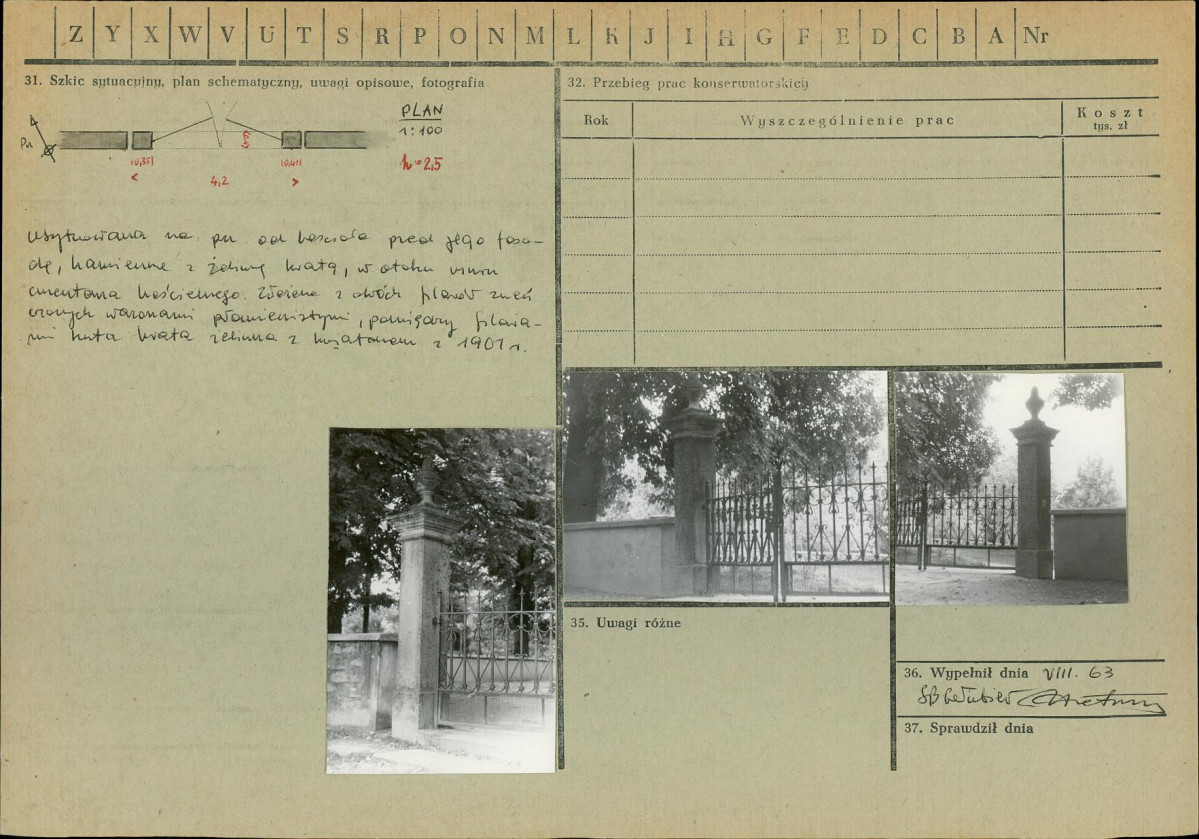 Z Y X W V U T S R P O N M L K J I H G F E D C B A Nr
31. Szkic sytuacyjny, plan schematyczny, uwagi opisowe, fotografia
PLAN
1:100
Pn
h=2,5
4,2
usytuowana na pn od kościoła przed jego fasa-
dą, kamienne z żelazną kratą, w otoku muru
cmentarza kościelnego. Złożona z dwóch filarów zwień
czonych wazonami płomienistymi, pomiędzy filara-
mi kuta krata żelazna z 1901 r.
32. Przebieg prac konserwatorskich
Rok
Wyszczególnienie prac
Koszt
tys. zł
35. Uwagi różne
36. Wypełnił dnia VIII. 63
37. Sprawdził dnia